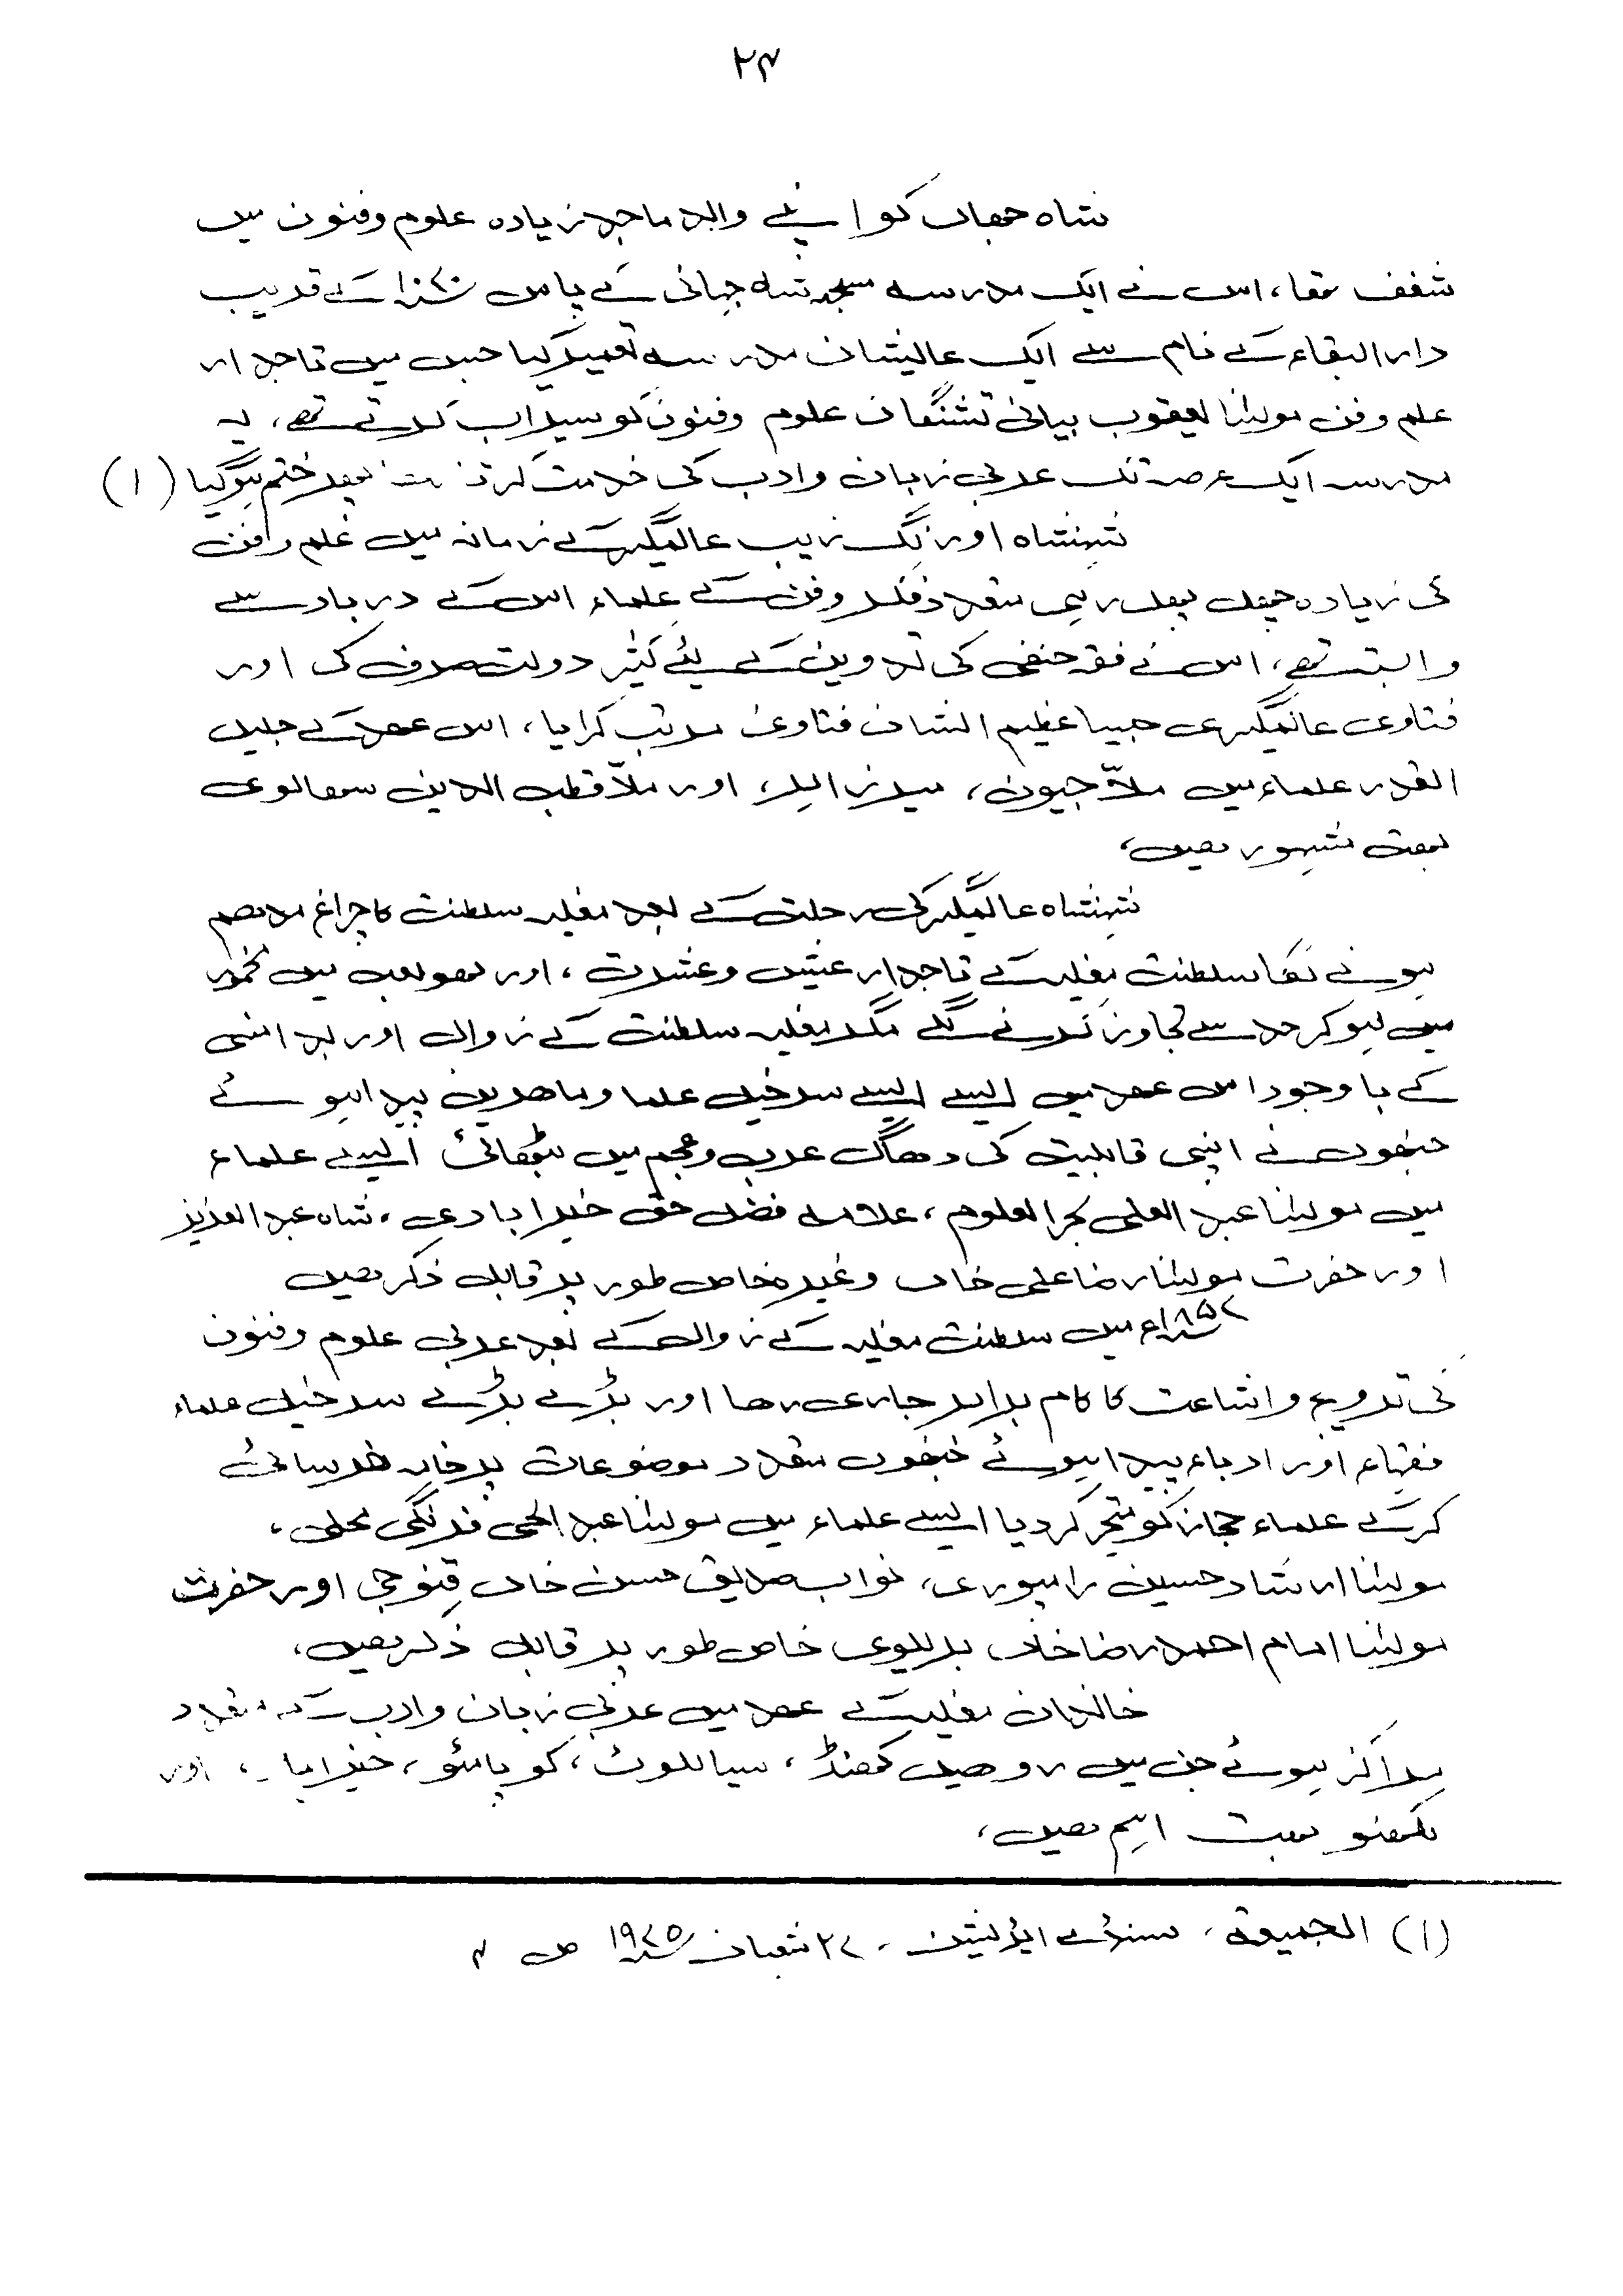 ۲۴
شاہ جھاں کو اپنے والد ماجد زیادہ علوم وفنون میں
شغف تھا، اس نے ایک مدرسہ مسجد شاہ جہانی کے پاس کے قریب
دار البقاء کے نام سے ایک عالیشان مدرسہ تعمیر کیا جس میں تاجدار
علم وفن مولٰنا یعقوب بیانی تشنگان علوم وفنون کو سیراب کرتے تھے، یہ
مدرسہ ایک عرصہ تک عربی زبان وادب کی خدمت کرتے بعد ختم ہوگیا (۱)
شہنشاہ اورنگ زیب عالمگیر کے زمانہ میں علم وفن
کی زیادہ چھل پھل رہی متعدد فکر وفن کے علماء اس کے دربار سے
وابستہ تھے، اس نے فقہ حنفی کی تدوین کے لیئے کثیر دولت صرف کی اور
فتاوی عالمگیری جیسا عظیم الشان فتاویٰ مرتب کرایا، اس عھد کے جلیل
القدر علماء میں ملاّ جیون، میر زاہد، اور ملاّ قطب الدین سھالوی
بھت مشہور ھیں،
شہنشاہ عالمگیر کی رحلت کے بعد مغلیہ سلطنت کا چراغ مدھم
ہونے لگا سلطنت مغلیہ کے تاجدار عیش وعشرت، اور لھو ولعب میں مخمور
میں ہوکر حد سے تجاوز کرنے لگے مگر مغلیہ سلطنت کے زوال اور بد امنی
کے باوجود اس عھد میں ایسے ایسے سرخیل علما وماھرین پیدا ہوئے
جنھوں نے اپنی قابلیت کی دھاگ عرب وعجم میں بٹھائی ایسے علماء
میں مولٰنا عبد العلی بحر العلوم، علامہ فضل حق خیرابادی، شاہ عبد العزیز
اور حضرت مولٰنا رضا علی خاں وغیرہ خاص طور پر قابل ذکر ھیں
۱۸۵۷ء میں سلطنت مغلیہ کے زوال کے بعد عربی علوم وفنون
کی ترویج واشاعت کا کام برابر جاری رھا اور بڑے بڑے سرخیل علماء
فقہاء اور ادباء پیدا ہوئے جنھوں متعدد موضوعات پر خامہ فرسائی
کرکے علماء حجاز کو متحیر کردیا ایسے علماء میں مولٰنا عبد الحی فرنگی محلی،
مولٰنا ارشاد حسین رامپوری، نواب صدیق حسن خاں قنوجی اور حضرت
مولٰنا امام احمد رضا خاں بریلوی خاص طور پر قابل ذکر ھیں،
خاندان مغلیہ کے عھد میں عربی زبان وادب کے متعدد
مراکز ہوئے جن میں روھیل کھنڈ، سیالکوٹ، گوپامئو، خیراباد، اور
لکھنو بھت اہم ھیں،
(۱) الجمیعۃ، سنڈے ایڈیشن، ۲۷ شعبان ۱۹۷۵ ص ۴